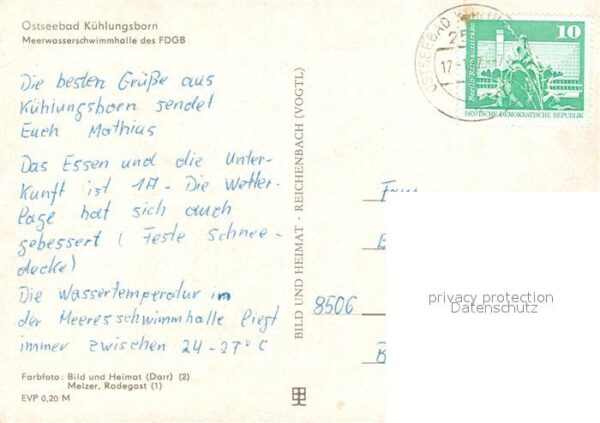 Ostseebad Kühlungsborn
Meerwasserschwimmhalle des FDGB
Die besten Grüße aus
Kühlungsborn sendet
Euch Mathias
Das Essen und die Unter-
kunft ist 1A - Die Wetter-
lage hat sich auch
gebessert (Feste Schnee-
decke)
Die Wassertemperatur in
der Meeresschwimmhalle liegt
immer zwischen 24-27°C
Farbfoto: Bild und Heimat (Darr) (2)
Melzer, Radegast (1)
EVP 0,20 M
BILD UND HEIMAT · REICHENBACH (VOGTL)
OSTSEEBAD
10
Berlin Rathausstraße
DEUTSCHE DEMOKRATISCHE REPUBLIK
8506
privacy protection
Datenschutz